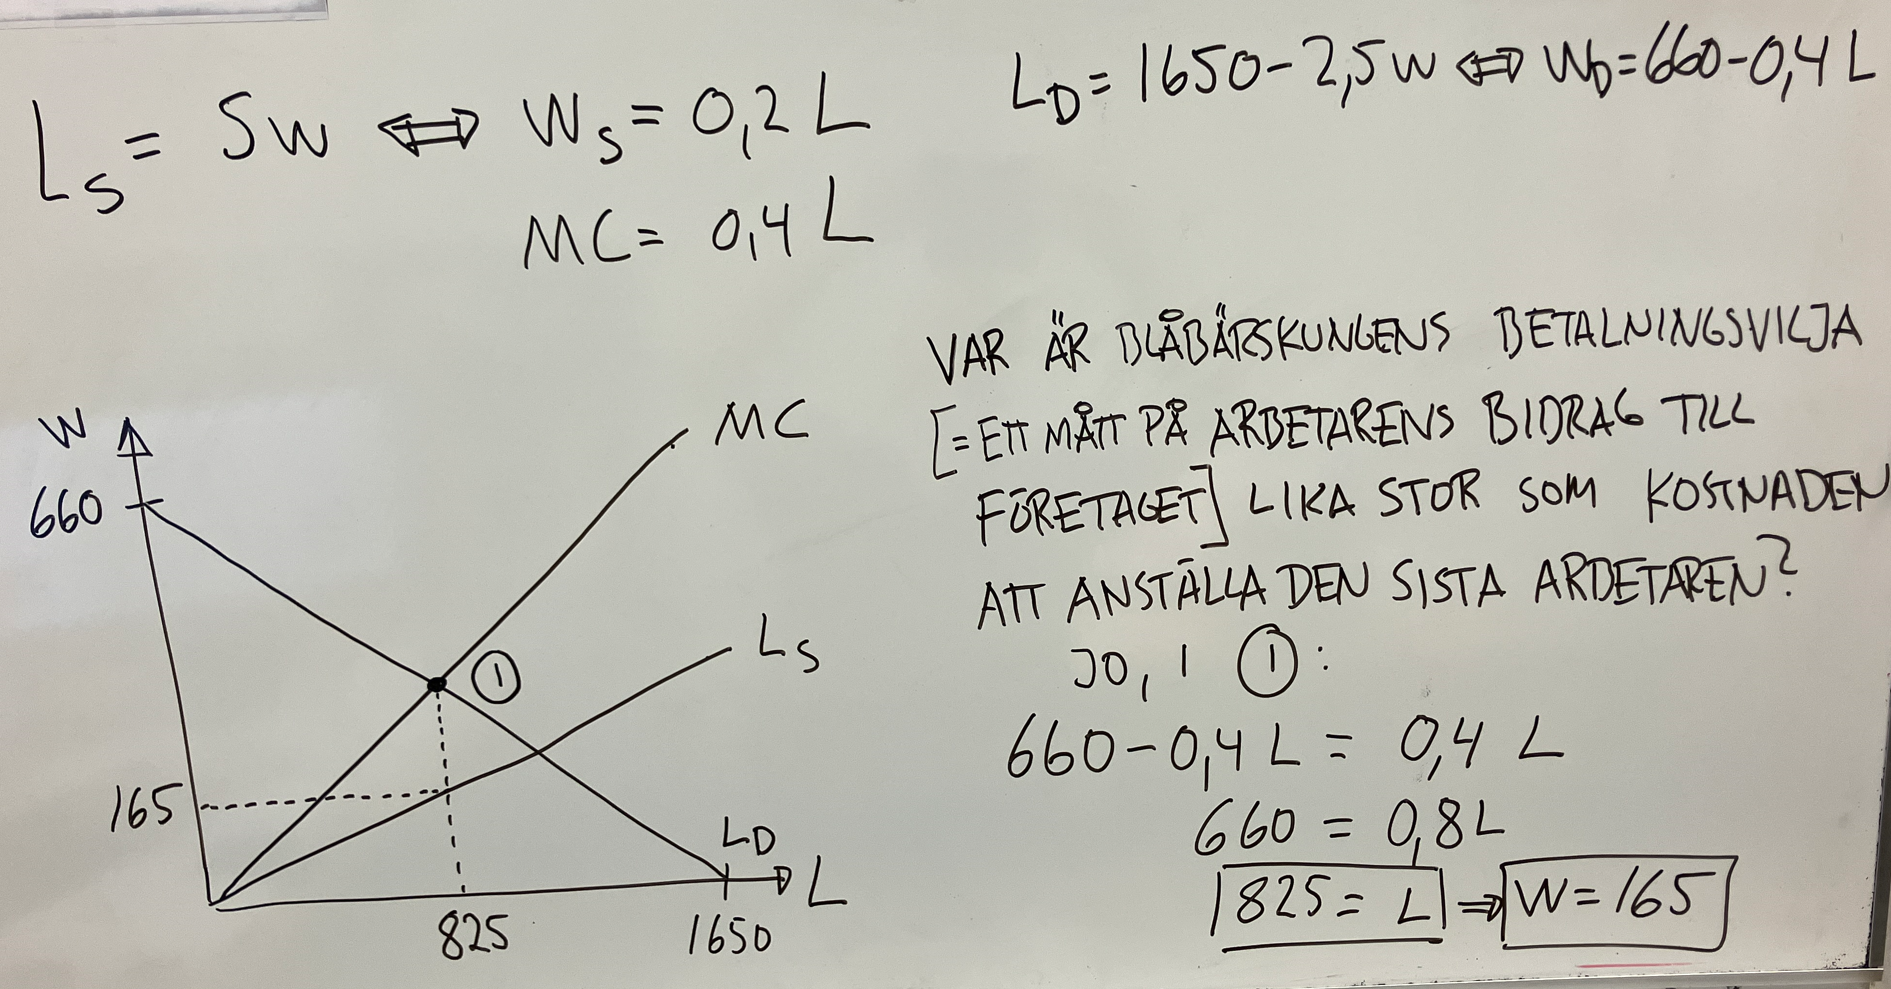 L_S = 5w ⟺ W_S = 0,2 L
MC = 0,4 L
L_D = 1650 - 2,5w ⟺ W_D = 660 - 0,4 L
VAR ÄR BLÅBÄRSKUNGENS BETALNINGSVILJA
[= ETT MÅTT PÅ ARBETARENS BIDRAG TILL
FÖRETAGET] LIKA STOR SOM KOSTNADEN
ATT ANSTÄLLA DEN SISTA ARBETAREN?
JO, I ①:
660 - 0,4 L = 0,4 L
660 = 0,8 L
825 = L ⇒ W = 165
W
660
165
MC
①
L_S
L_D
L
825
1650